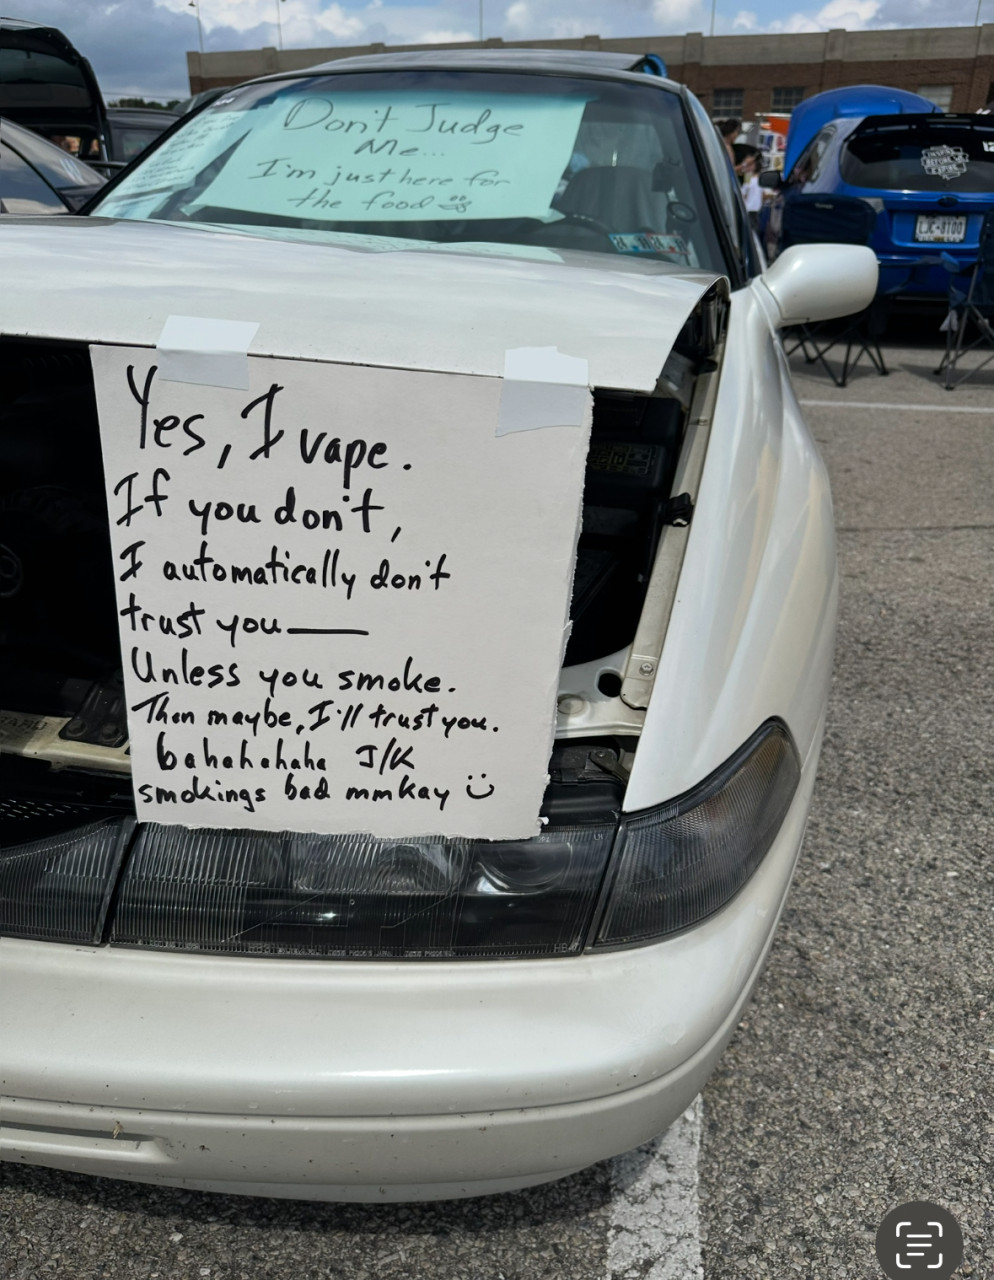 Don't Judge
Me...
I'm just here for
the food
Yes, I vape.
If you don't,
I automatically don't
trust you——
Unless you smoke.
Then maybe, I'll trust you.
bahahahaha J/K
smokings bad mmkay